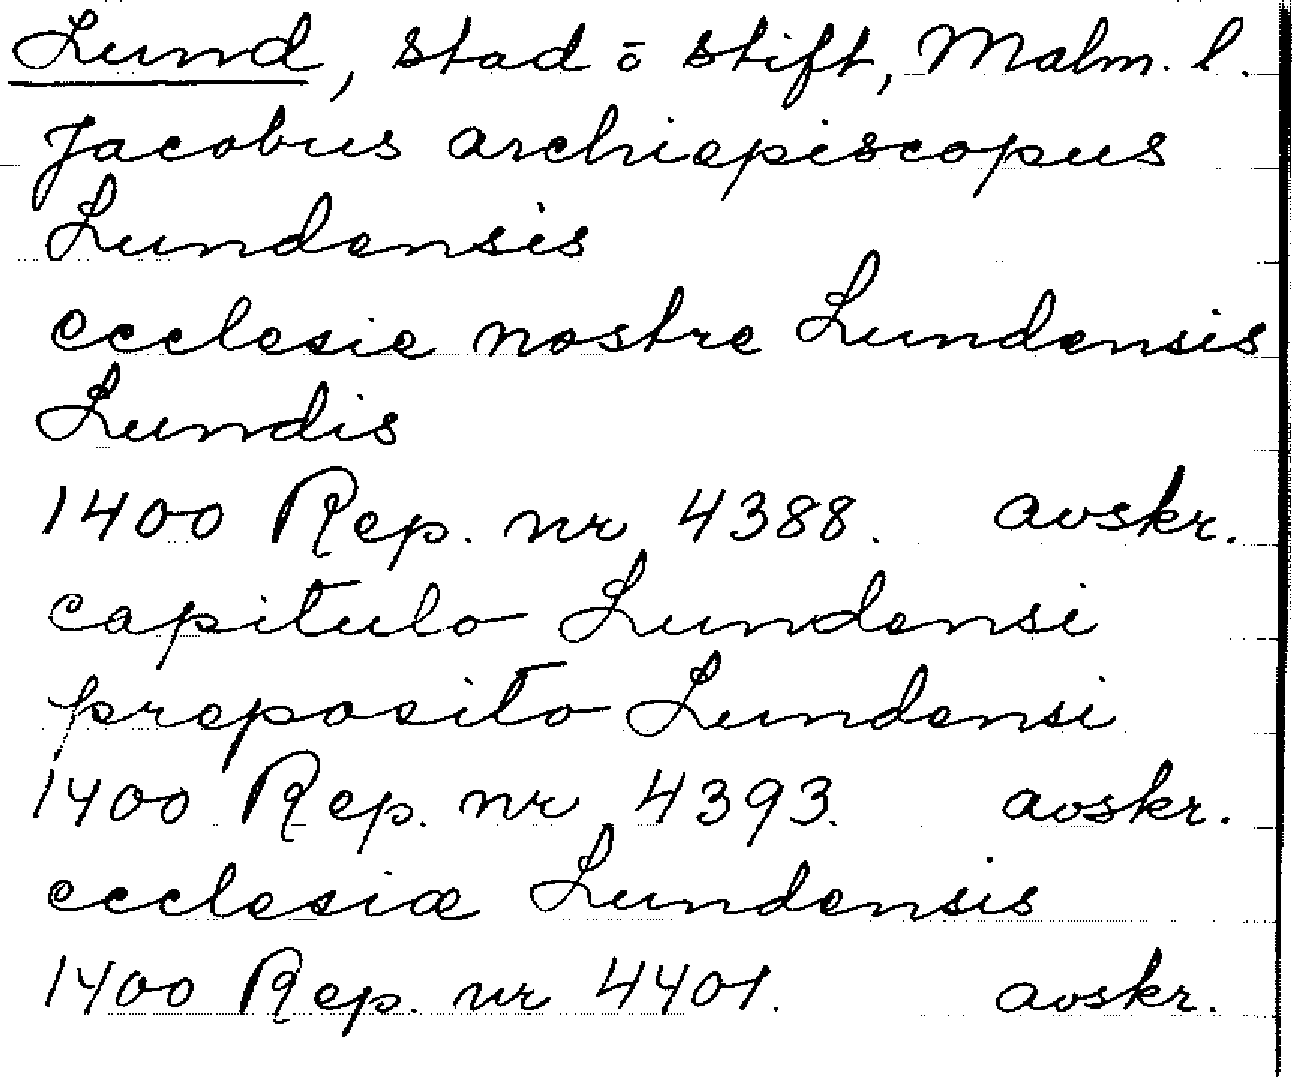 Lund, stad ō stift, Malm. l.
Jacobus archiepiscopus
Lundensis
ecclesie nostre Lundensis
Lundis
1400 Rep. nr 4388. avskr.
capitulo Lundensi
preposito Lundensi
1400 Rep. nr 4393. avskr.
ecclesiæ Lundensis
1400 Rep. nr 4401. avskr.